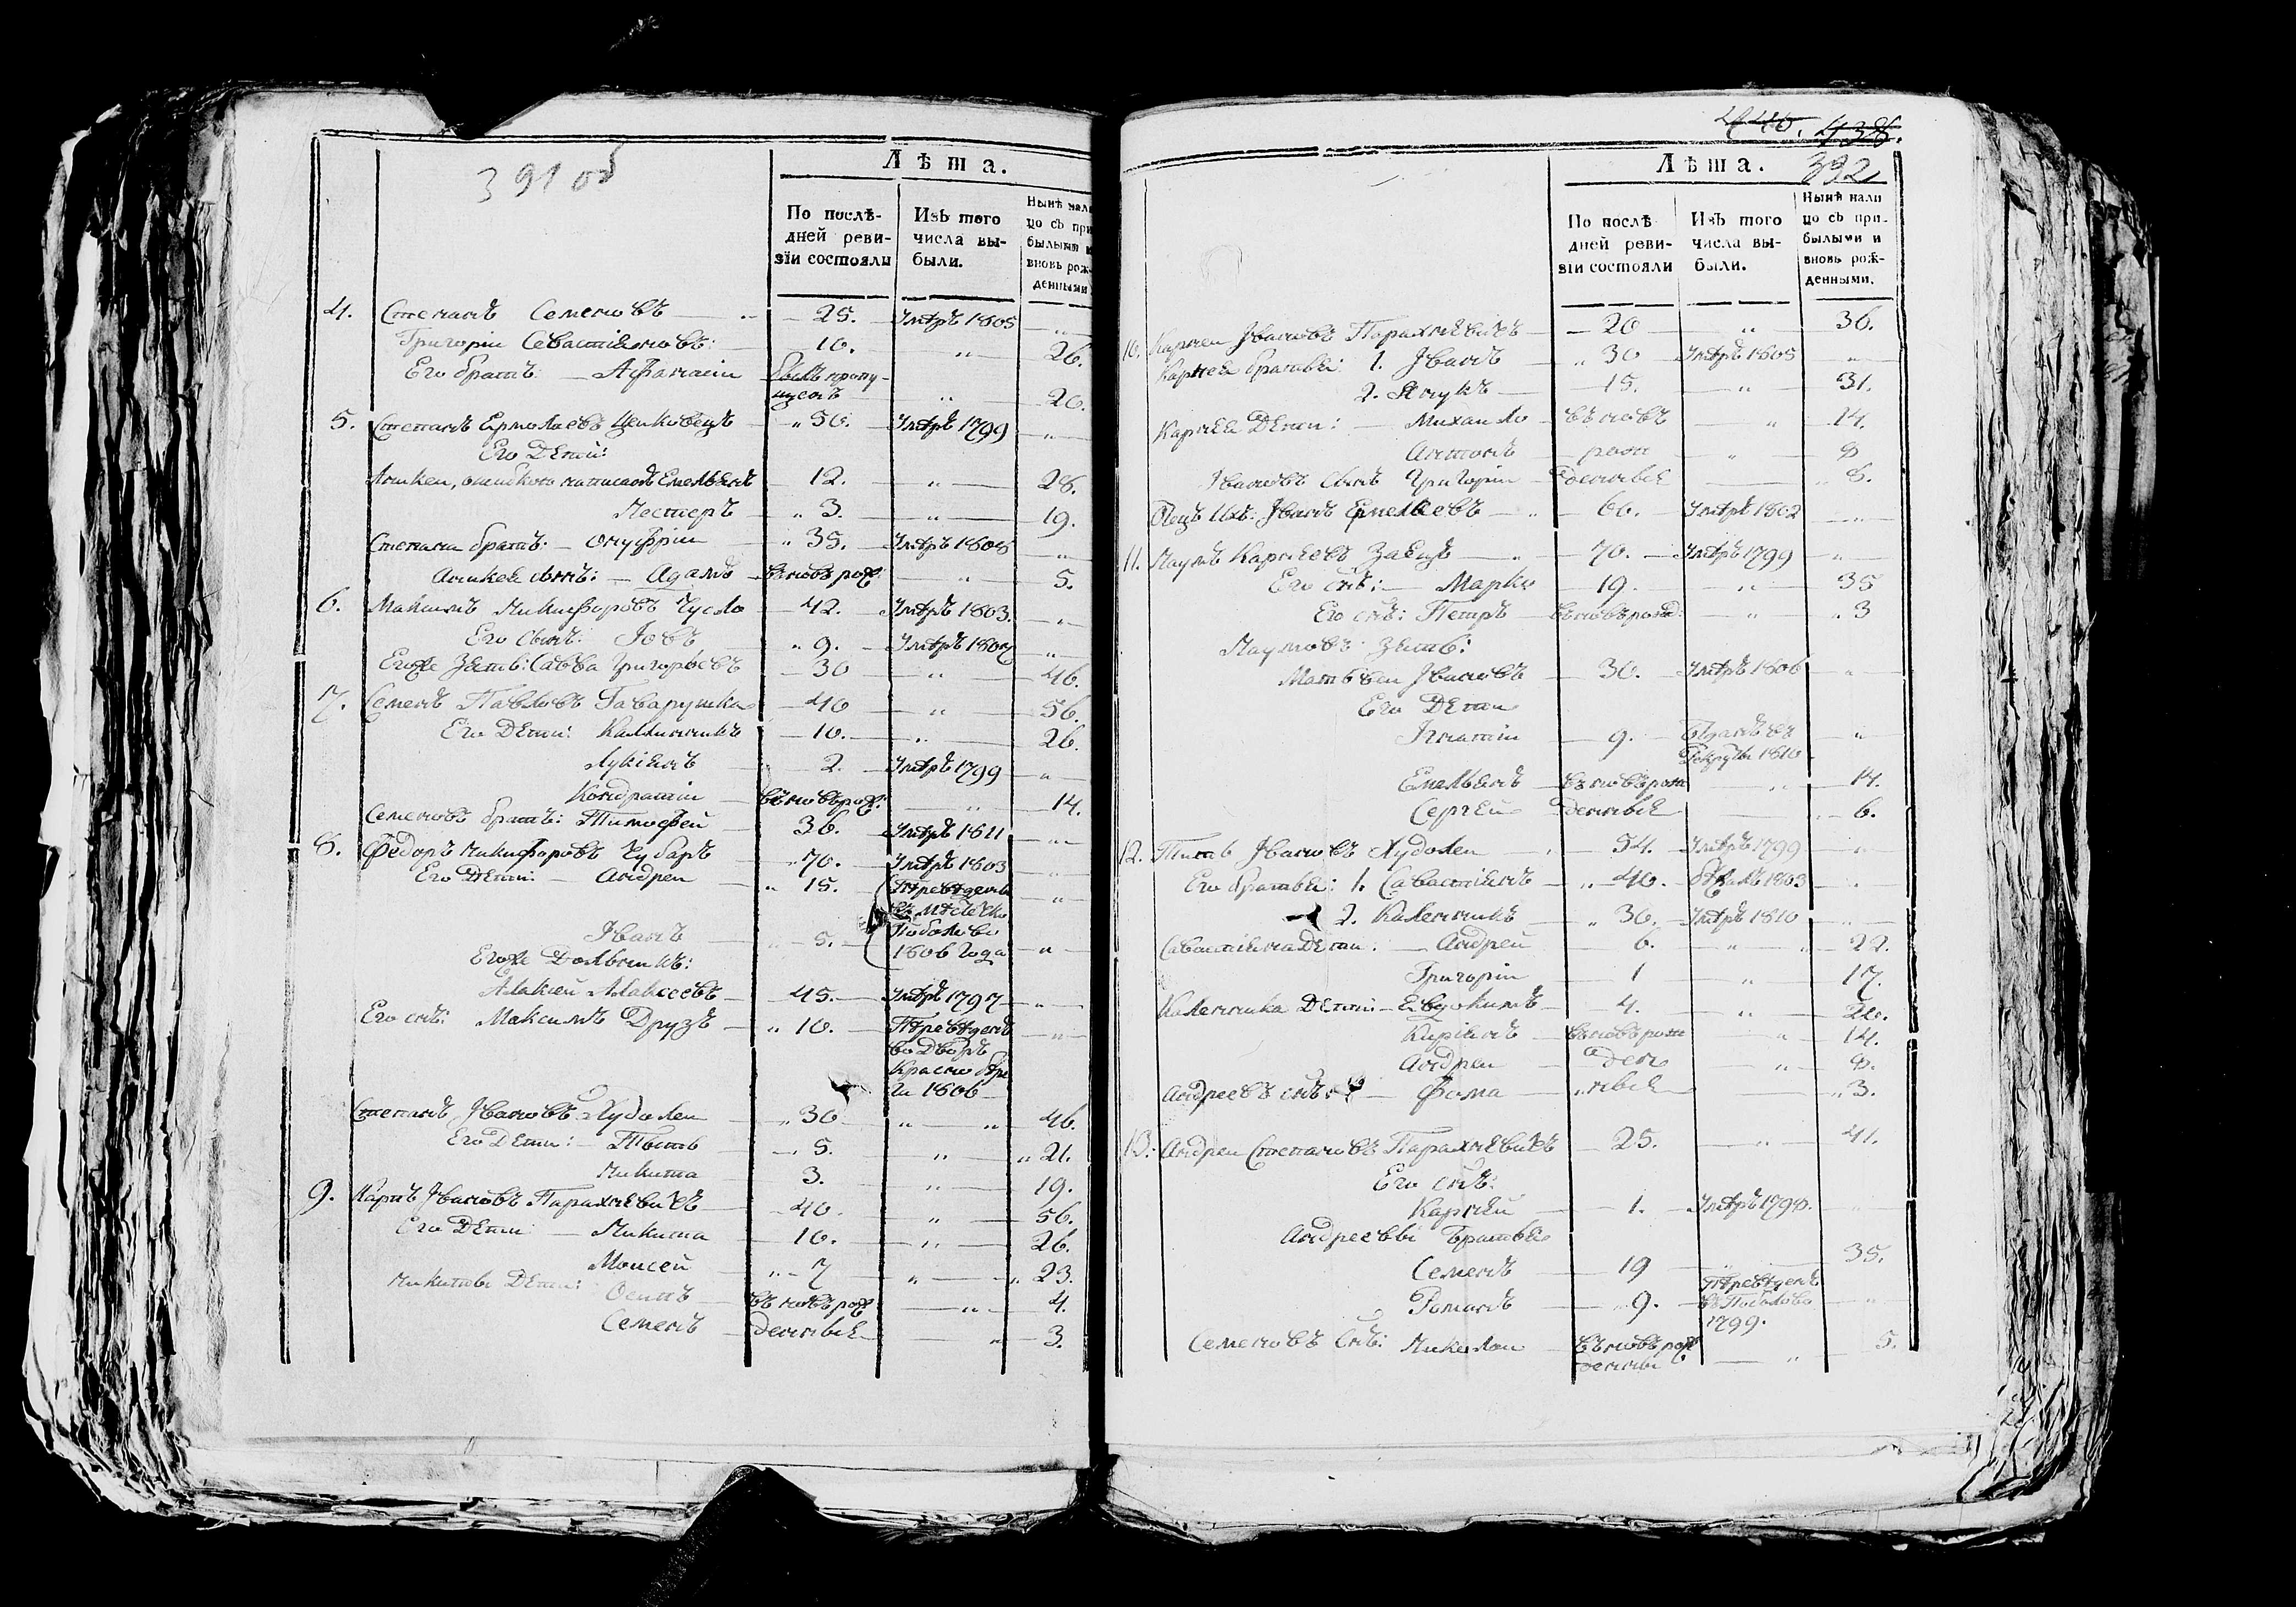 391 об
Лѣта.
По послѣ-
дней реви-
зіи состояли
Изъ того
числа вы-
были.
Нынѣ нали
цо съ при
былыми и
вновь рож-
денными
4. Степанъ Семеновъ — 25. — Умѣръ 1805 — „
Григорій Севастіяновъ: — 10. — „ — 26.
Его братъ: — Афанасій — былъ пропу-
щенъ — „ — 20.
5. Степанъ Ермолаевъ — „ 50. — Умѣръ 1799 — „
Его Дѣти:
ошибкою написанъ Емельянъ — 12. — „ — 28.
Нестеръ — „ 3. — „ — 19.
Степана братъ: — Онуфрій — „ 35. — Умѣръ 1805 — „
сынъ: — Адамъ — вновь рож: — „ — 5.
6. Максимъ Никифоровъ — 42. — Умѣръ 1803. — „
Его сынъ: Іовъ — „ 9. — Умѣръ — „
Егоже Зять: Савва Григорьевъ — 30 — „ — 46.
7. Семенъ Павловъ Гаварушка — 40 — „ — 56.
Его Дѣти: Калинникъ — 10. — „ — 26.
Лукіянъ — 2. — Умѣръ 1799 — „
Кондратій — вновь рож: — „ — 14.
Семеновъ братъ: Тимофей — 36. — Умѣръ 1811 — „
8. Федоръ Никифоровъ — „ 70. — Умѣръ 1803 — „
Его Дѣти: — Андрей — „ 15. — Переведены — „
въ мѣстечко
Іванъ — „ 5. — Тоболово
1806 года — „
Егоже Дольникъ:
Алексей Алексеевъ — 45. — Умѣръ 1797 — „
Его снъ: Максимъ Друзъ — „ 10. — Переведенъ — „
во Дворъ
Красно бре
ги 1806
Степанъ Івановъ Худолей — „ 30 — „ — „ 46.
Его Дѣти: — Титъ — „ 5. — „ — „ 21.
Никита — 3. — „ — 19.
9. Карпъ Івановъ Парахневичъ — 40. — „ — 56.
Его Дѣти — Никита — 10. — „ — 26.
Моисей — „ 7 — „ — „ 23.
Никиты Дѣти: Осипъ — вновь рож — „ — 4.
Семенъ — денныя — „ — 3.
440. 438.
392
Лѣта.
По послѣ-
дней реви-
зіи состояли
Изъ того
числа вы-
были.
Нынѣ нали
цо съ при-
былыми и
вновь рож-
денными.
10. Карней Івановъ Парахневичъ — 20 — „ — 36.
Карнея братья: 1. Іванъ — „ 30 — Умѣръ 1805 — „
2. Янукъ — 15. — „ — 31.
Карнея Дѣти: — Михайло — вновь — „ — 14.
Антонъ — рож — „ — 8
Івановъ сынъ Григорій — денныя — „ 8.
Отецъ Ихъ: Іванъ — „ — 60. — Умѣръ 1802 — „
11. Наумъ Карнеевъ Заецъ — „ — 70. — Умѣръ 1799 — „
Его снъ: — Марко — 19. — „ — 35
Его снъ: Петръ — вновь рожд: — „ — „ 3
Наумовъ Зять:
Матвѣй Івановъ — 30. — Умѣръ 1806 — „
Его Дѣти
Ігнатій — 9. — Отданъ въ — „
Рекруты 1810
Емельянъ — вновь рож — „ — 14.
Сергей — денныя — „ 6.
12. Титъ Івановъ Худолей — 54. — Умѣръ 1799 — „
Его братья: 1. Савастіянъ — „ 40. — 1803 — „
2. Каленникъ — „ 30. — Умѣръ 1810 — „
Савастіяна Дѣти: — Андрей — 6. — „ — 22.
Григорій — 1 — „ — 17.
Каленника Дѣти — Евдокимъ — 4. — „ — 20.
Киріянъ — вновь рож — „ — 14.
Андрей — ден — „ — 8.
Андреевъ снъ: — Фома — ныя — „ 3.
13. Андрей Степановъ Парахневичъ — 25. — „ — 41.
Его снъ:
Карней — 1. — Умѣръ 1798. — „
Андреевы Братья
Семенъ — 19 — „ — 35.
Романъ — „ 9. — Переведенъ — „
въ Тоболово
1799.
Семеновъ Снъ: Николай — вновь рож — „ — 5.
денны